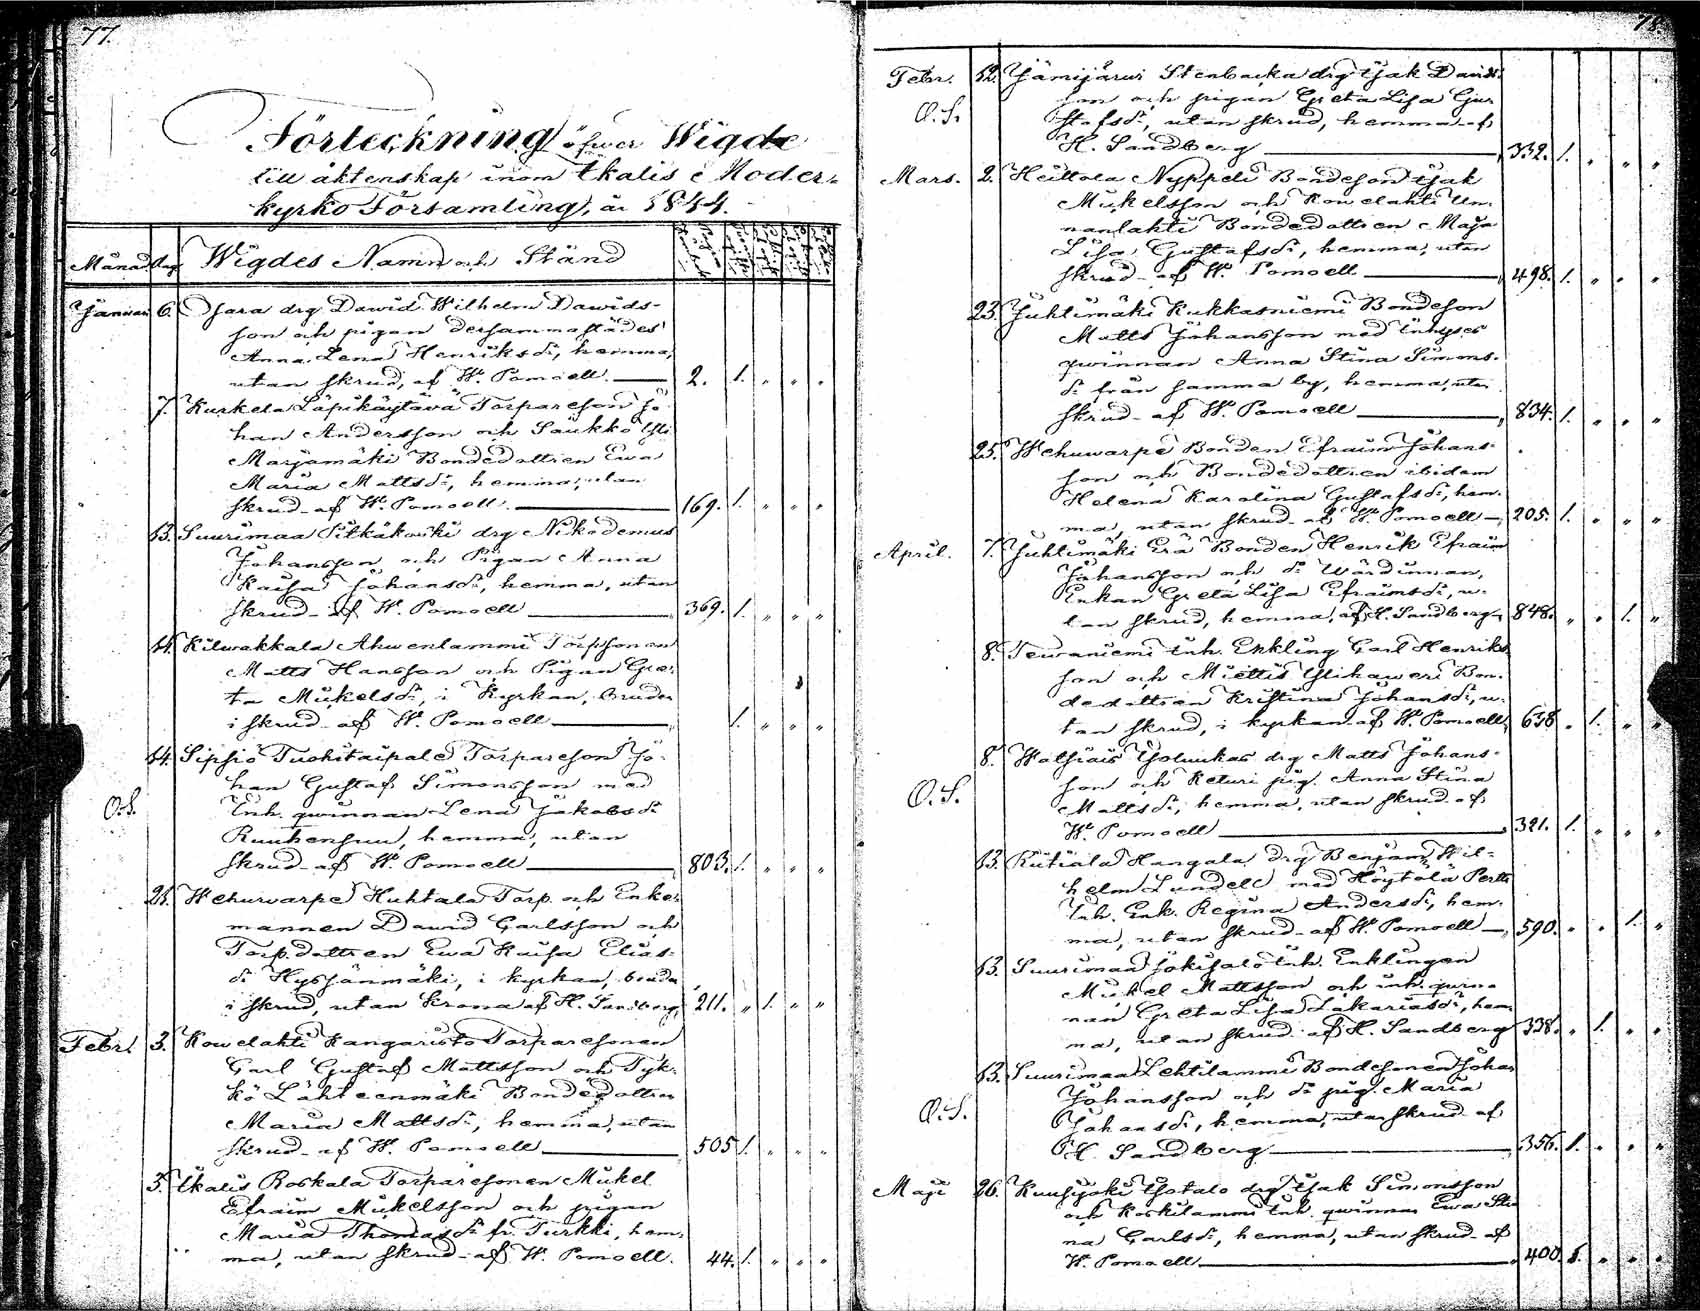 77.
Förteckning öfwer Wigde
till äktenskap inom Ikalis Moder-
kyrko Församling, år 1844.
Månad Dag Wigdes Namn och Stånd
Januari 6. Sara drg Dawid Wilhelm Dawids-
son och pigan dersammastädes
Anna Lena Henriksdr, hemma,
utan skrud, af W. Pomoell. 2. 1. " " "
7. Kurkela Läpikäytävä Torpareson Jo-
han Andersson och Säukko Yli
Marjamäki Bondedottren Ewa
Maria Mattsdr, hemma, utan
skrud - af W. Pomoell. 169. 1. " " "
13. Suurimaa Pitkäkoski drg Nikodemus
Johansson och Pigan Anna
Kaisa Johansdr, hemma, utan
skrud - af W. Pomoell 369. 1. " " "
14. Kilwakkala Ahwenlammi Torpsonen
Matts Hansson och Pigan Gre-
ta Mikelsdr, i Kyrkan, bruden
i skrud - af W. Pomoell 1. " " "
14. Sipsiö Tuohitaipale Torpareson Jo-
han Gustaf Simonsson med
O.S. Inh. qwinnan Lena Jakobsdr
Ruuhensuu, hemma, utan
skrud - af W. Pomoell 803. 1. " " "
21. Wehuwarpe Huhtala Torp. och Enke-
mannen Dawid Carlsson och
Torp.dottren Ewa Kaisa Elias-
dr Hyssänmäki, i kyrkan, bruden
i skrud, utan krona af H. Sandberg. 211. " 1. " "
Febr. 3. Kowelahti Kangaristo Torparesonen
Carl Gustaf Mattsson och Tyk-
kö Lähteenmäki Bondedottren
Maria Mattsdr, hemma, utan
skrud - af W. Pomoell 505 1. " " "
5. Ikalis Roskala Torparesonen Mikel
Efraim Mikelsson och pigan
Maria Thomasdr fr. Turkki, hem-
ma, utan skrud - af W. Pomoell. 44. 1. " " "
78.
Febr. 12. Jämijärwi Stenbacka drg Isak Davids-
son och pigan Greta Lisa Gu-
O.S. stafsdr, utan skrud, hemma - af
H. Sandberg 332. 1. " " "
Mars. 2. Heittola Nyppeli Bondeson Isak
Mikelsson och Kowelahti
Bondedottren Maja
Lisa Gustafsdr, hemma, utan
skrud - af W. Pomoell 498. 1. " " "
23. Juhtimäki Kukkasniemi Bondeson
Matts Johansson med Inhyses
qwinnan Anna Stina Simons-
dr från samma by, hemma, utan
skrud - af W. Pomoell 834. 1. " " "
25. Wehuwarpe Bonden Efraim Johans-
son och Bondedottren ibidem
Helena Karolina Gustafsdr, hem-
ma, utan skrud - af W. Pomoell 205. 1. " " "
April. 7. Juhtimäki Erä Bonden Henrik Efraim
Johansson och dr Wärdinnan,
Enkan Greta Lisa Efraimsdr, u-
tan skrud, hemma, af H. Sandberg 848. " " 1. "
8. Tewaniemi Inh. Enkling Carl Henriks-
son och Miettis Ylikaweri Bon-
dedottren Kristina Johansdr, u-
tan skrud, i kyrkan - af W. Pomoell 638 " 1. " "
8. drg Matts Johans-
son och Keturi pig. Anna Stina
O.S. Mattsdr, hemma, utan skrud - af
W. Pomoell 321. 1. " " "
13. Kitiälä Hangala drg Benjam. Wil-
helm Lundell med Höytölä Pertti
Inh. Enk. Regina Andersdr, hem-
ma, utan skrud - af W. Pomoell 590. " " 1. "
13. Suurimaa Jokisalo Inh. Enklingen
Mikel Mattsson och inh. qwin-
nan Greta Lisa Zakariasdr, hem-
ma, utan skrud - af H. Sandberg 338. " 1. " "
13. Suurimaa Lehtilammi Bondesonen Johan
Johansson och dr pig. Maria
O.S. Johansdr, hemma, utan skrud - af
H. Sandberg 356. 1. " " "
Maji 26. Kuusjoki Isotalo drg Isak Simonsson
och Koskilammi Inh. qwinnan Ewa Sti-
na Carlsdr, hemma, utan skrud - af
W. Pomoell 400. 1. " " "